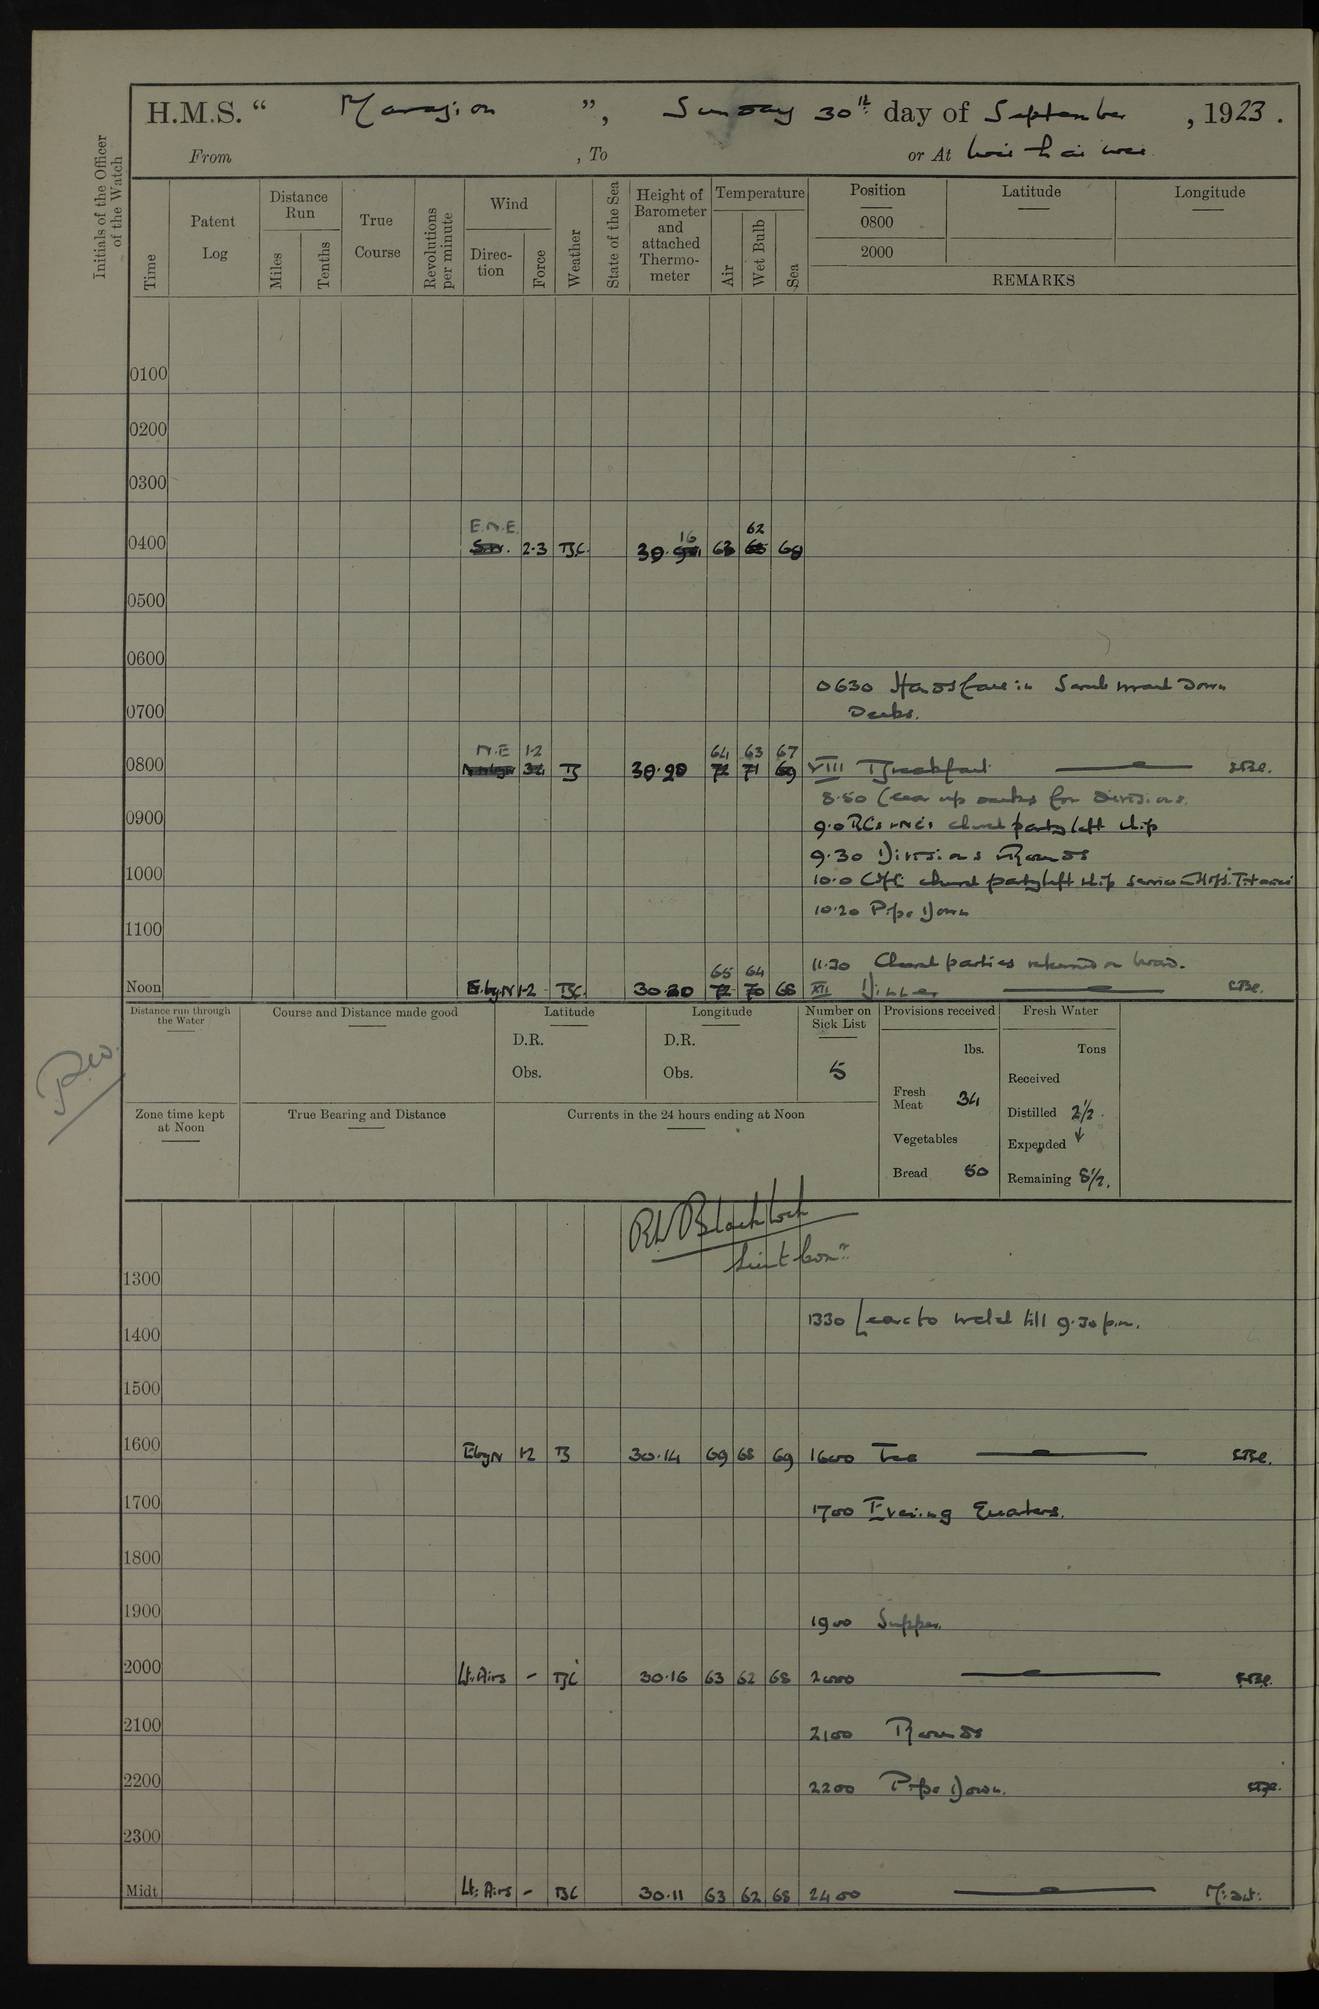 H.M.S. “ Marazion ”, Sunday 30th day of September, 1923.
From , To or At Wei-hai-wei
Initials of the Officer of the Watch
Time
Patent Log
Distance Run
Miles
Tenths
True Course
Revolutions per minute
Wind
Direc-tion
Force
Weather
State of the Sea
Height of Barometer and attached Thermo-meter
Temperature
Air
Wet Bulb
Sea
Position
Latitude
Longitude
0800
2000
REMARKS
0100
0200
0300
E.N.E. 16 62
0400 2-3 BC. 30. 63 68
0500
0600
0630 Hands fall in Scrub & wash down
0700 Decks.
N.E 1-2 64 63 67
0800 B 30.20 VIII Breakfast
8.50 Clear up decks for divisions.
0900 9.0 RCs & NCs church party left ship
9.30 Divisions & Rounds
1000 10.0 C of E church party left ship service HMS Titania
10.20 Pipe Down
1100
11.30 Church parties returned on board.
65 64
Noon E.byN 1-2 BC. 30.20 72 70 68 XII Dinner
Distance run through the Water
Course and Distance made good
Latitude
D.R.
Obs.
Longitude
D.R.
Obs.
Number on Sick List
5
Provisions received
lbs.
Fresh Meat 34
Vegetables
Bread 50
Fresh Water
Tons
Received
Distilled 2½
Expended
Remaining 8½.
Zone time kept at Noon
True Bearing and Distance
Currents in the 24 hours ending at Noon
RW Blacklock
Lieut Comr
1300
1330 Leave to watch till 9.30 p.m.
1400
1500
1600 EbyN 1-2 B 30.14 69 68 69 1600 Tea
1700 1700 Evening Quarters.
1800
1900 1900 Supper.
2000 Lt. Airs - BC 30.16 63 62 68 2000
2100 2100 Rounds
2200 2200 Pipe Down.
2300
Midt Lt. Airs - BC 30.11 63 62 68 2400